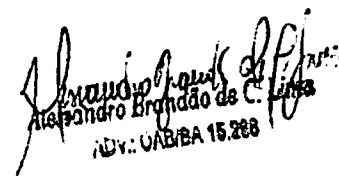 Alessandro Brandão de C. Lima
ADV.: OAB/BA 15.288